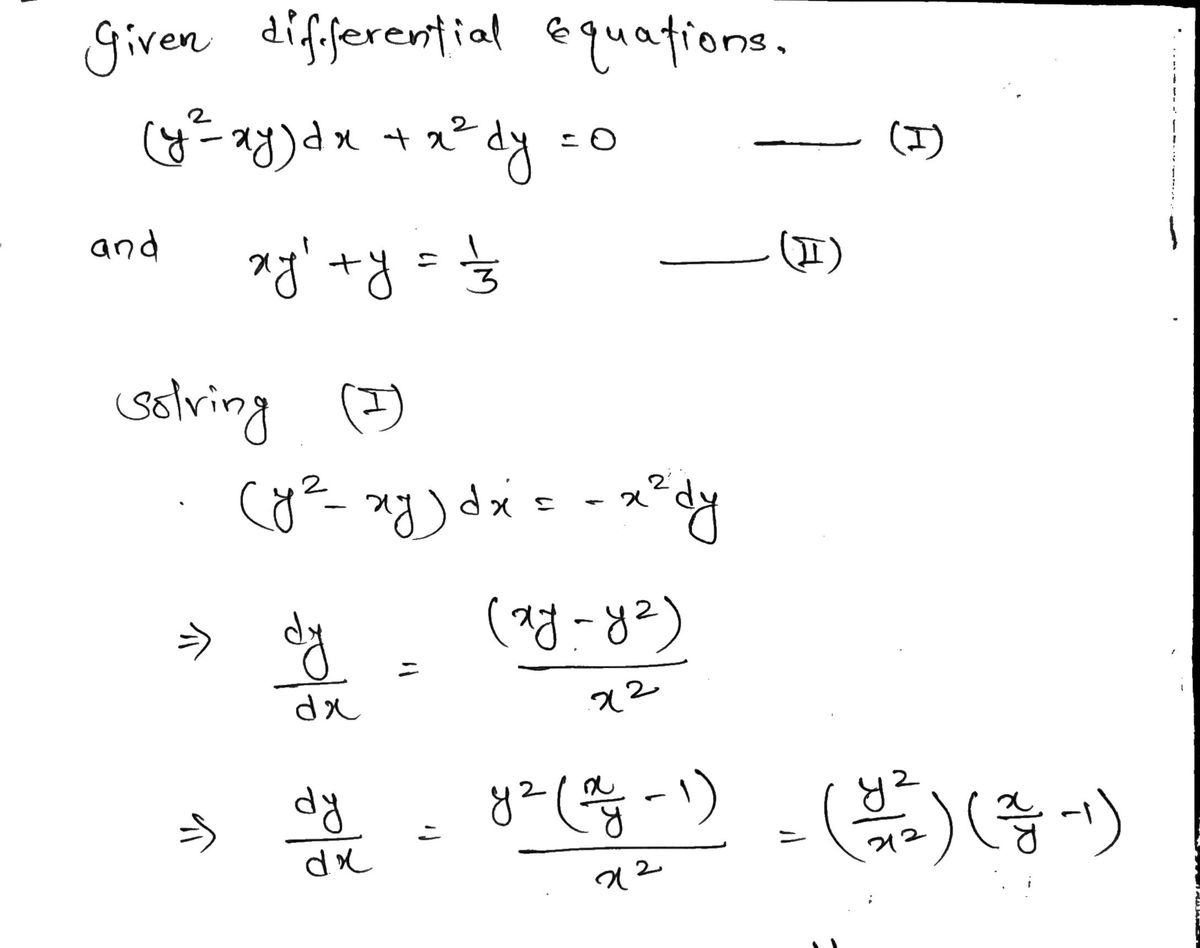 Given differential equations.
(y²-xy)dx + x² dy = 0 —— (I)
and xy' + y = 1/3 —— (II)
solving (I)
(y²- xy) dx = - x² dy
⇒ dy/dx = (xy - y²)/x²
⇒ dy/dx = y²(x/y - 1)/x² = (y²/x²)(x/y - 1)